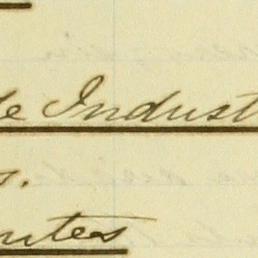 le Indust
s.
nutes